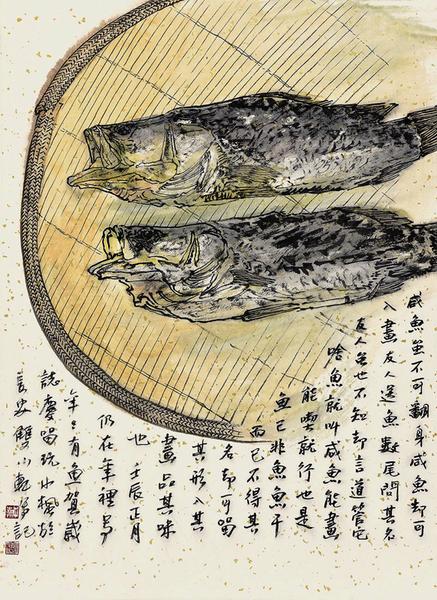 咸魚虽不可翻身咸魚却可
入畫友人送魚數尾問其名
友人也不知却言道管它
啥魚就叫咸魚能畫
能喫就行也是
魚已非魚魚干
而已不得其
名却可留
其形入其
畫品其味
也 壬辰正月
仍在裡写
年年有魚賀歲
誌慶留玩於
長安雙山記